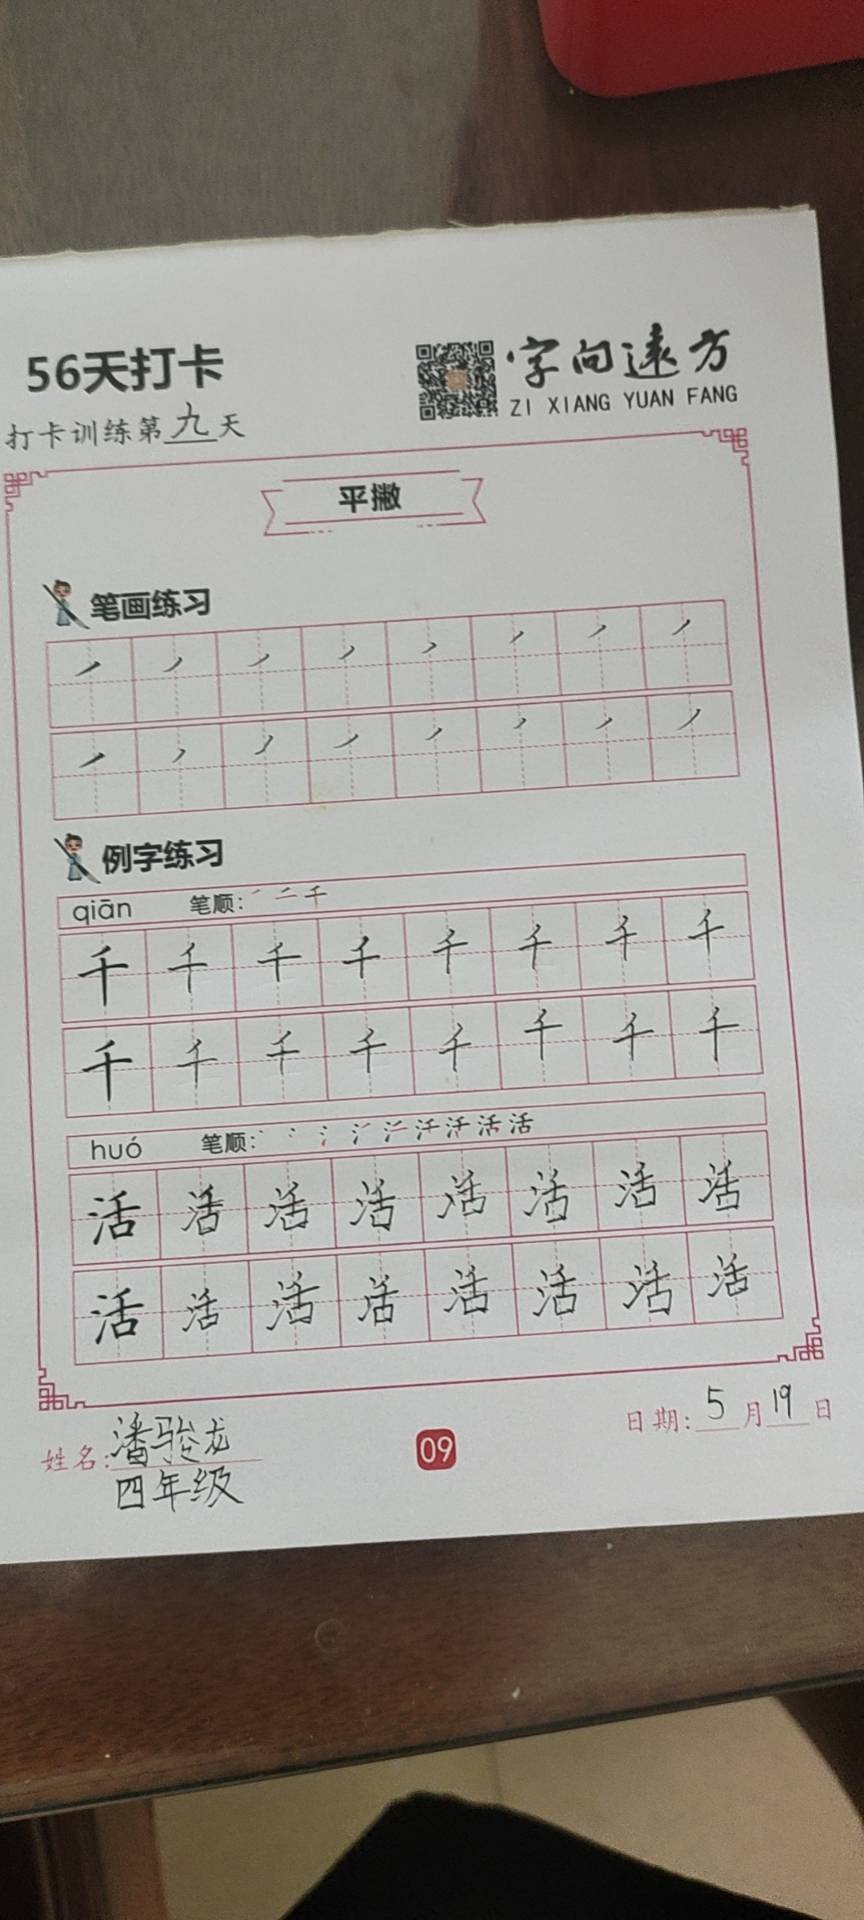 56天打卡
字向远方
ZI XIANG YUAN FANG
打卡训练第九天
平撇
笔画练习
例字练习
qiān 笔顺:
千 千 千 千 千 千 千 千
千 千 千 千 千 千 千 千
huó 笔顺:
活 活 活 活 活 活 活 活
活 活 活 活 活 活 活 活
姓名:潘骏龙
四年级
09
日期:5月19日